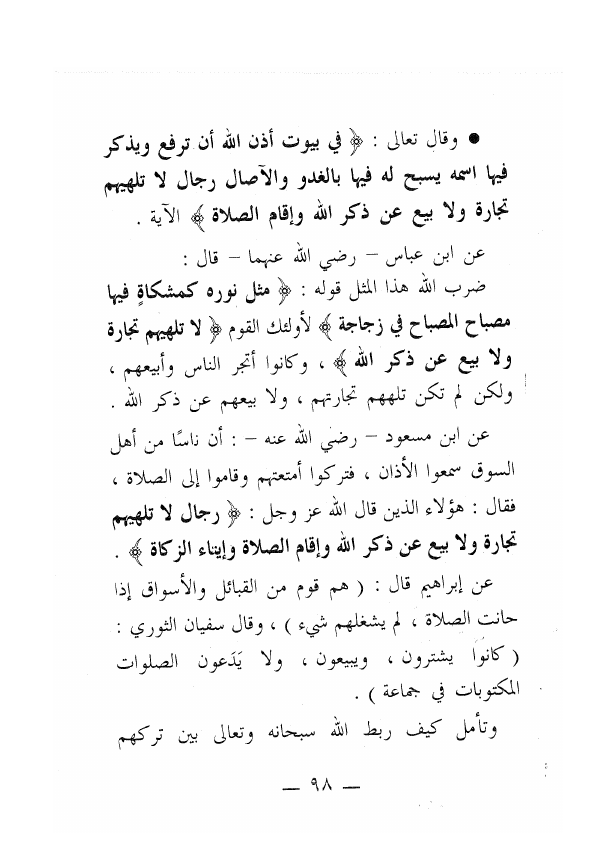 • وقال تعالى : ﴿ في بيوت أذن الله أن ترفع ويذكر
فيها اسمه يسبح له فيها بالغدو والآصال رجال لا تلهيهم
تجارة ولا بيع عن ذكر الله وإقام الصلاة ﴾ الآية .
عن ابن عباس – رضي الله عنهما – قال :
ضرب الله هذا المثل قوله : ﴿ مثل نوره كمشكاةٍ فيها
مصباح المصباح في زجاجة ﴾ لأولئك القوم ﴿ لا تلهيهم تجارة
ولا بيع عن ذكر الله ﴾ ، وكانوا أتجر الناس وأبيعهم ،
ولكن لم تكن تلههم تجارتهم ، ولا بيعهم عن ذكر الله .
عن ابن مسعود – رضي الله عنه – : أن ناسًا من أهل
السوق سمعوا الأذان ، فتركوا أمتعتهم وقاموا إلى الصلاة ،
فقال : هؤلاء الذين قال الله عز وجل : ﴿ رجال لا تلهيهم
تجارة ولا بيع عن ذكر الله وإقام الصلاة وإيتاء الزكاة ﴾ .
عن إبراهيم قال : ( هم قوم من القبائل والأسواق إذا
حانت الصلاة ، لم يشغلهم شيء ) ، وقال سفيان الثوري :
( كانوا يشترون ، ويبيعون ، ولا يَدَعون الصلوات
المكتوبات في جماعة ) .
وتأمل كيف ربط الله سبحانه وتعالى بين تركهم
— ٩٨ —